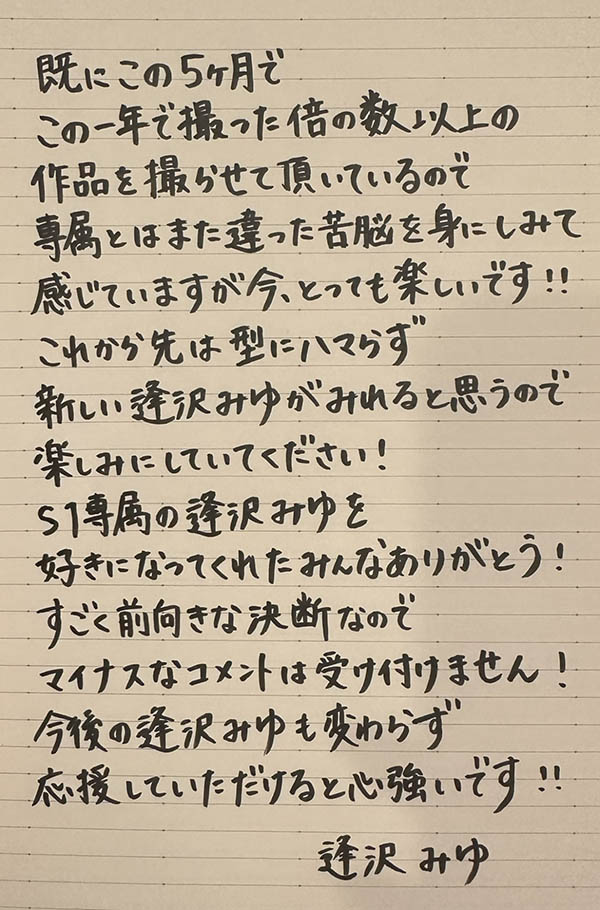 既にこの5ヶ月で
この一年で撮った倍の数以上の
作品を撮らせて頂いているので
専属とはまた違った苦脳を身にしみて
感じていますが今、とっても楽しいです!!
これから先は型にハマらず
新しい逢沢みゆがみれると思うので
楽しみにしていてください!
S1専属の逢沢みゆを
好きになってくれたみんなありがとう!
すごく前向きな決断なので
マイナスなコメントは受け付けません!
今後の逢沢みゆも変わらず
応援していただけると心強いです!!
逢沢みゆ